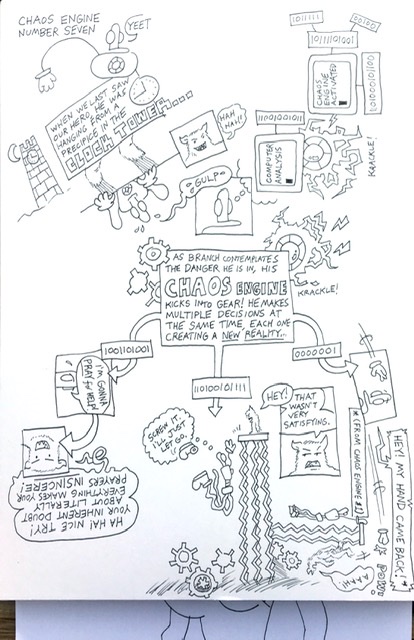 CHAOS ENGINE
NUMBER SEVEN
YEET
WHEN WE LAST SAW
OUR HERO, HE WAS
HANGING FROM A
PRECIPICE IN THE
CLOCK TOWER...
HAH
HAH!!
GULP
1011111
00100
10111101001
CHAOS
ENGINE
ACTIVATED
KRACKLE!
COMPUTER
ANALYSIS
AS BRANCH CONTEMPLATES
THE DANGER HE IS IN, HIS
CHAOS ENGINE
KICKS INTO GEAR! HE MAKES
MULTIPLE DECISIONS AT
THE SAME TIME, EACH ONE
CREATING A NEW REALITY...
KRACKLE!
1001101001
110100101111
0000001
I'M GONNA
PRAY for HELP!
HA HA! NICE TRY!
YOUR INHERENT DOUBT
ABOUT LITERALLY
EVERYTHING MAKES YOUR
PRAYERS INSINCERE!
SCREW IT.
I'LL JUST
LET GO.
HEY!
THAT
WASN'T
VERY
SATISFYING.
HEY! MY HAND CAME BACK!
AAAH!